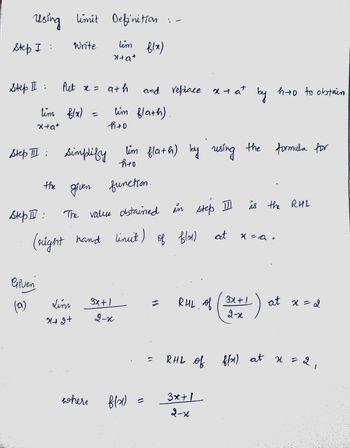 Using Limit Definition :-
Step I : Write lim x→a⁺ f(x)
Step II : Put x = a+h and replace x→a⁺ by h→0 to obtain
lim x→a⁺ f(x) = lim h→0 f(a+h).
Step III : Simplify lim h→0 f(a+h) by using the formula for
the given function.
Step IV : The value obtained in step III is the RHL
(right hand limit) of f(x) at x=a.
Given
(a) Lim x→2+ 3x+1/2-x = RHL of (3x+1/2-x) at x=2
= RHL of f(x) at x = 2,
where f(x) = 3x+1/2-x